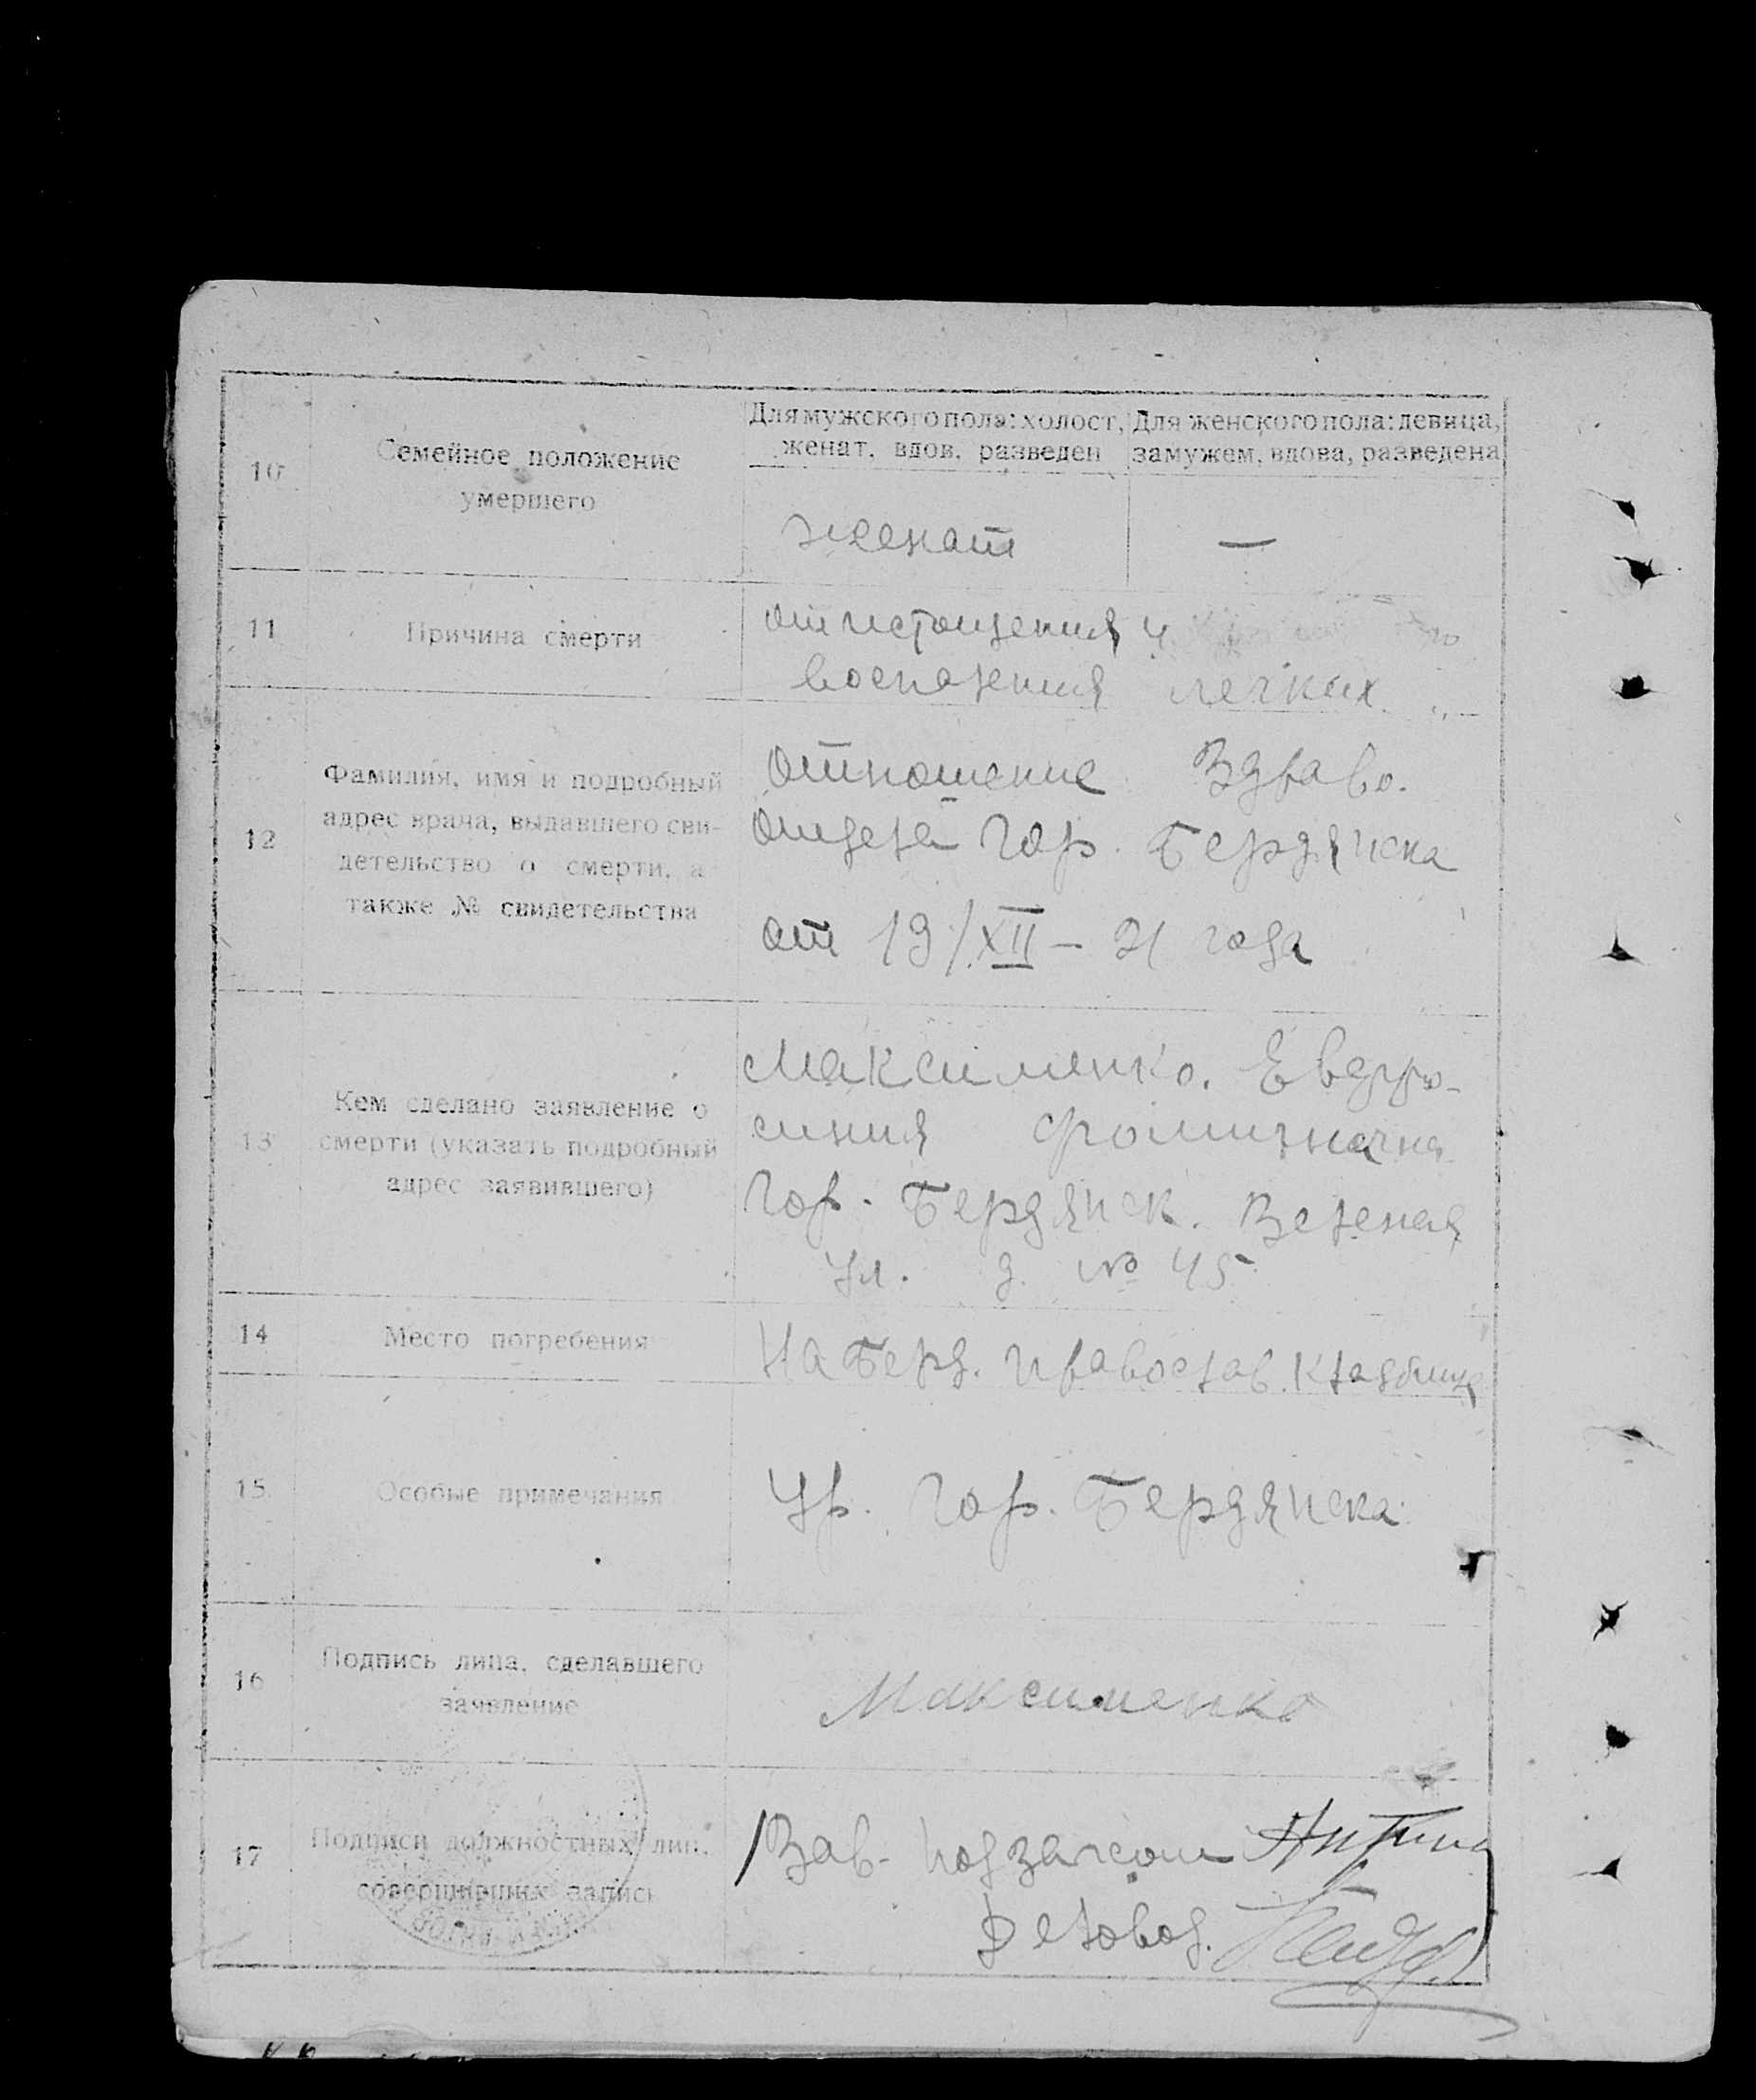 Для мужского пола: холост, женат, вдов, разведен
Для женского пола: девица, замужем, вдова, разведена
10
Семейное положение
умершего
женат
—
11
Причина смерти
от истощения и
воспаления легких
12
Фамилия, имя и подробный
адрес врача, выдавшего сви-
детельство о смерти, а
также № свидетельства
отношение Здраво.
отдела гор. Бердянска
от 19/XII – 21 года
13
Кем сделано заявление о
смерти (указать подробный
адрес заявившего)
Максименко. Евдро-
синия
гор. Бердянск. Зеленая
ул. д. № 45
14
Место погребения
На Берд. православ. кладбище
15
Особые примечания
Ур. гор. Бердянска
16
Подпись лица, сделавшего
заявление
Максименко
17
Подписи должностных лиц,
совершивших запись
Зав. подзагсом
Деловод.